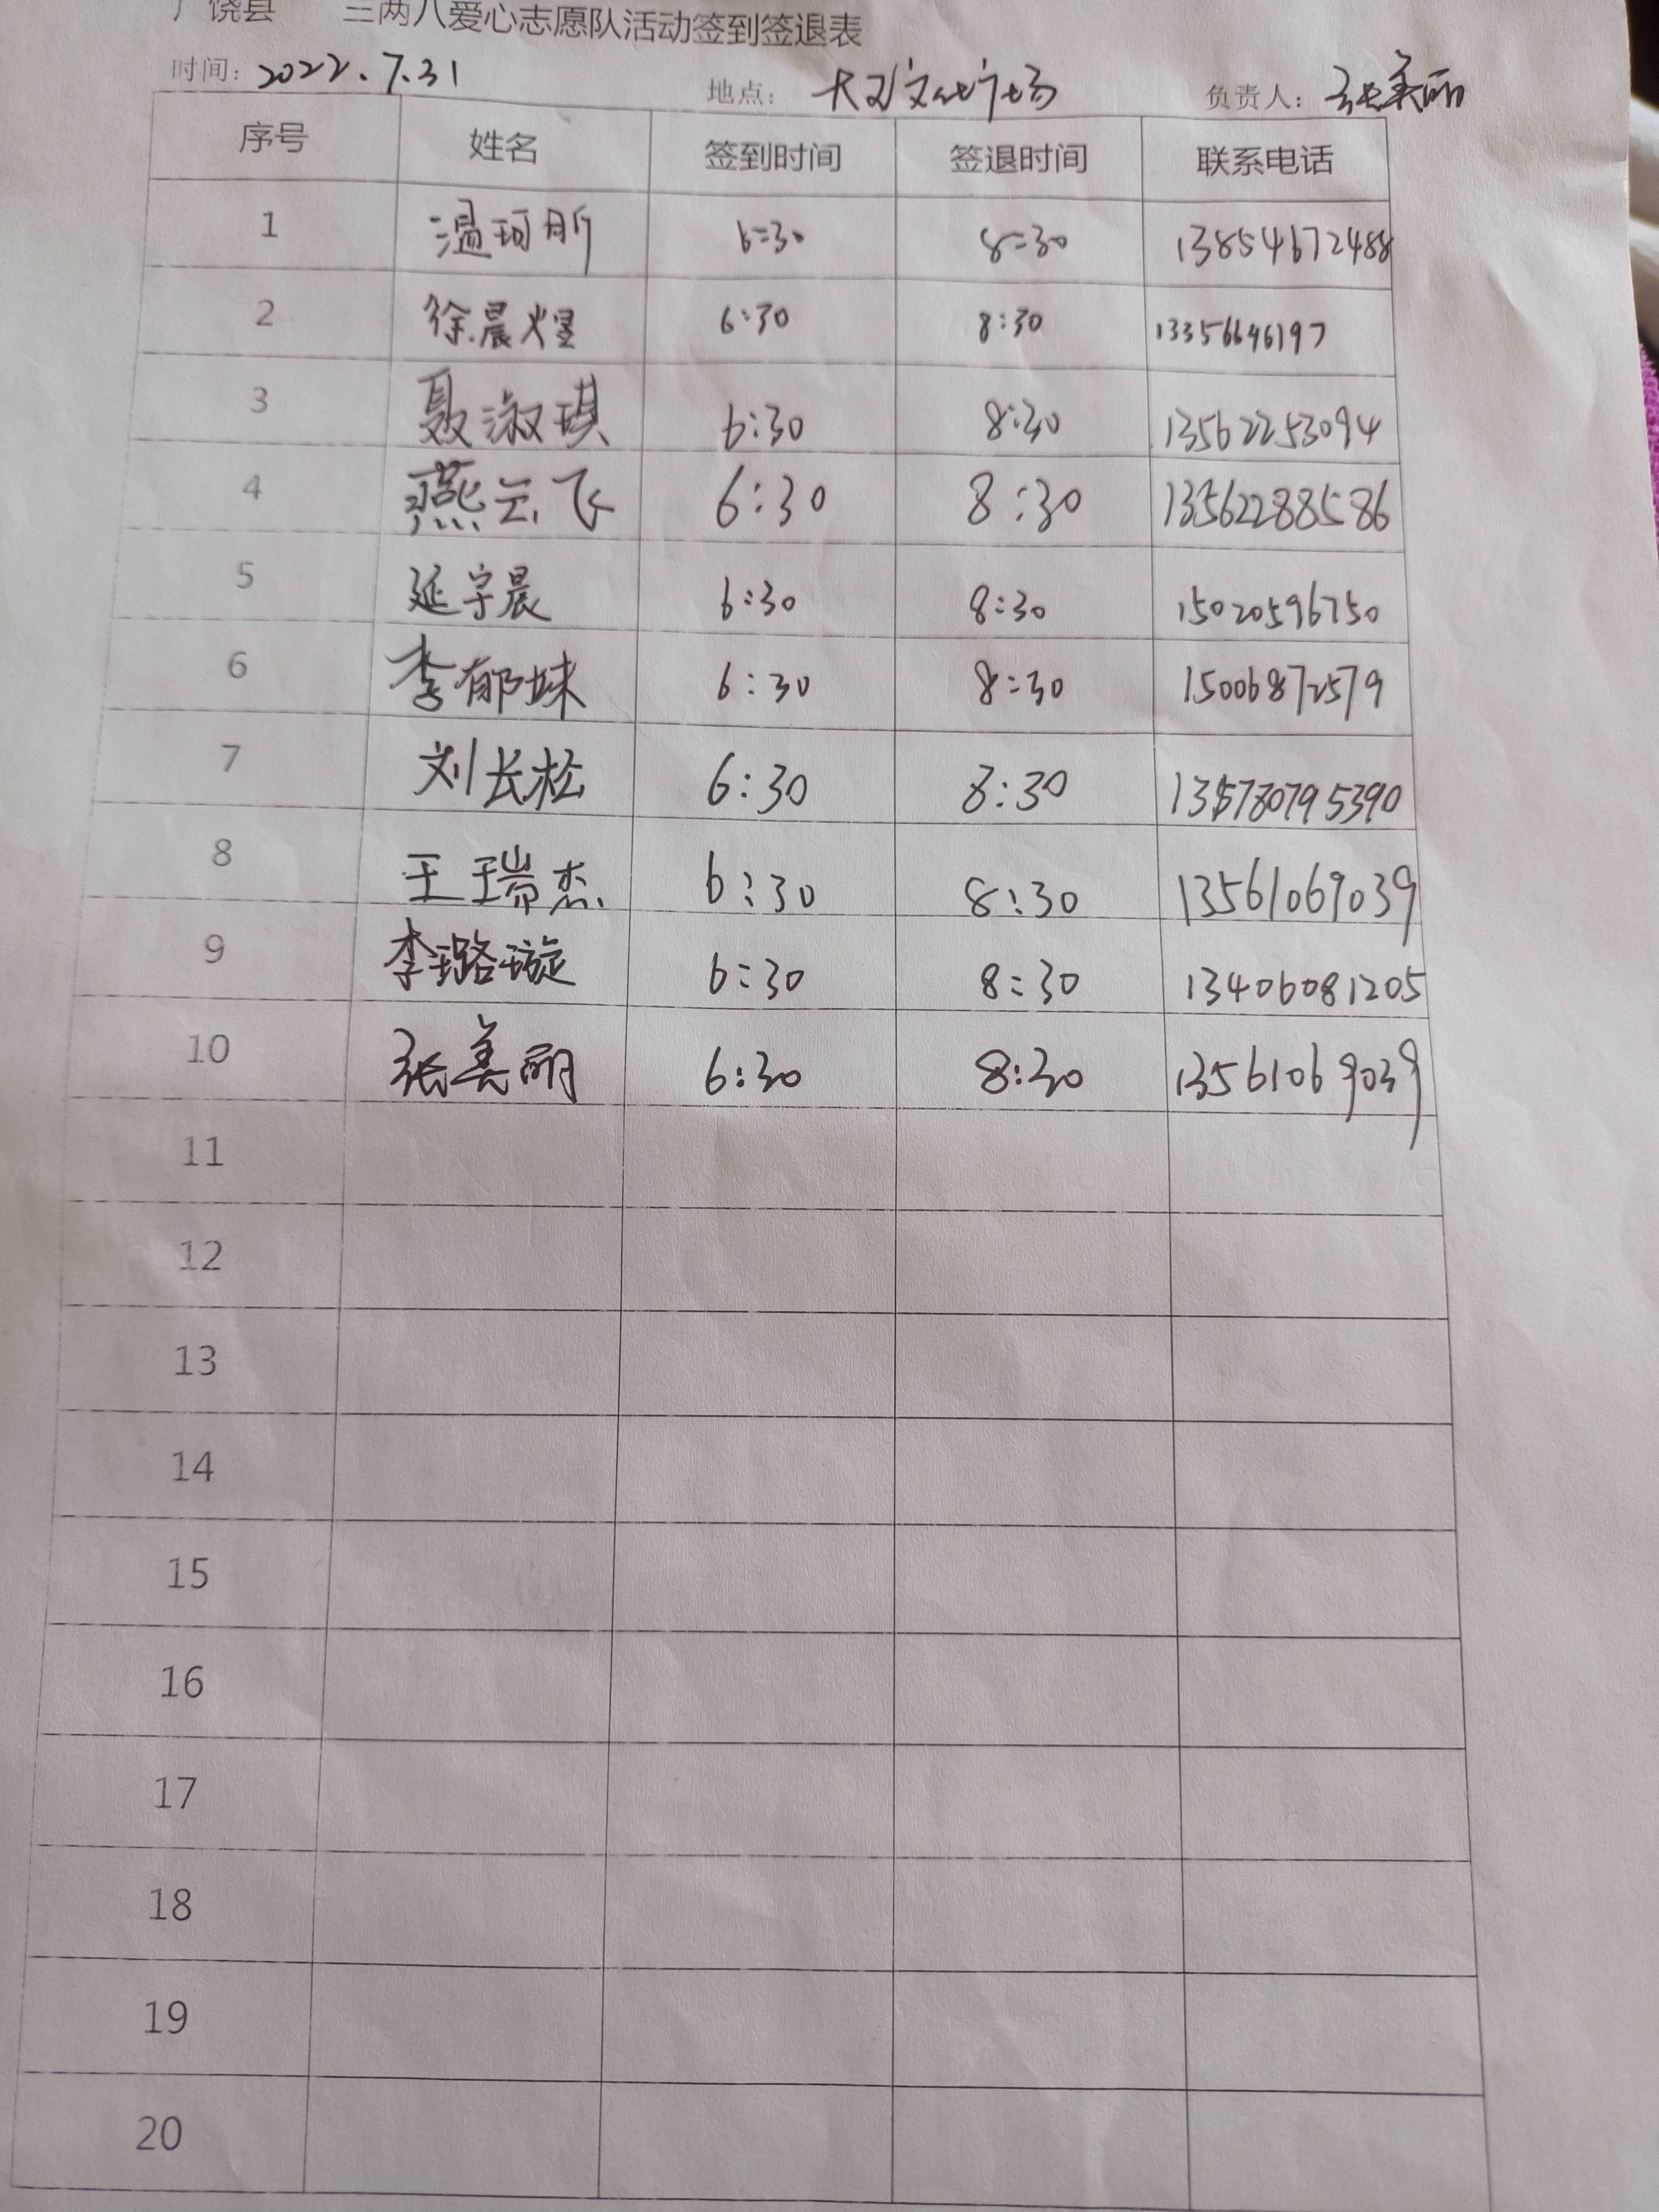 广饶县 三两八爱心志愿队活动签到签退表
时间: 2022.7.31 地点: 大王文化广场 负责人: 张美丽
序号 姓名 签到时间 签退时间 联系电话
1 温珂昕 6:30 8:30 13854672488
2 徐晨煜 6:30 8:30 13356646197
3 聂淑琪 6:30 8:30 13562253094
4 燕云飞 6:30 8:30 13562288586
5 延宇晨 6:30 8:30 15020596750
6 李郁妹 6:30 8:30 15006872579
7 刘长松 6:30 8:30
8 王瑞杰 6:30 8:30 13561069039
9 李璐璇 6:30 8:30 13406081205
10 张美丽 6:30 8:30 13561069039
11
12
13
14
15
16
17
18
19
20